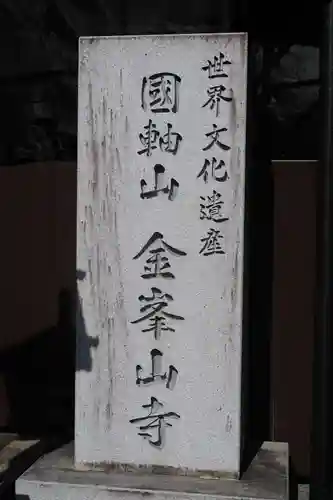 世界文化遺産
國軸山金峯山寺